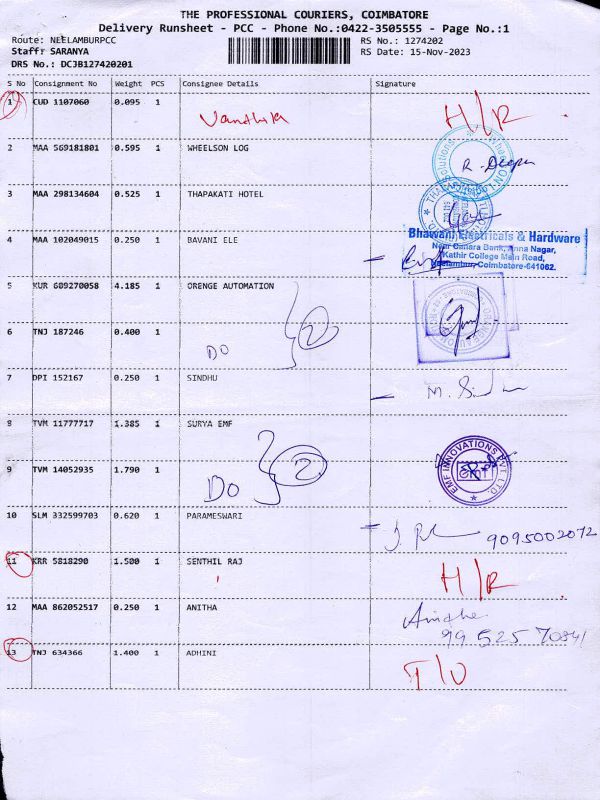 THE PROFESSIONAL COURIERS, COIMBATORE
Delivery Runsheet - PCC - Phone No.:0422-3505555 - Page No.:1
Route: NEELAMBURPCC RS No.: 1274202
Staff: SARANYA RS Date: 15-Nov-2023
DRS No.: DCJB127420201
S No Consignment No Weight PCS Consignee Details Signature
1 CUD 1107060 0.095 1 Vandhika H/R
2 MAA 569181801 0.595 1 WHEELSON LOG R. Deepa
3 MAA 298134604 0.525 1 THAPAKATI HOTEL
4 MAA 102049015 0.250 1 BAVANI ELE
Bhawani Electricals & Hardware
Near Canara Bank, Anna Nagar,
Kathir College Main Road,
Neelambur, Coimbatore-641062.
5 KUR 609270058 4.185 1 ORENGE AUTOMATION
6 TNJ 187246 0.400 1 DO 2
7 DPI 152167 0.250 1 SINDHU M. Sindhu
8 TVM 11777717 1.385 1 SURYA EMF
9 TVM 14052935 1.790 1 DO 2
EMF INNOVATIONS PVT. LTD.
10 SLM 332599703 0.620 1 PARAMESWARI 9095002072
11 KRR 5818290 1.500 1 SENTHIL RAJ H/R
12 MAA 862052517 0.250 1 ANITHA Anitha
9952570841
13 TNJ 634366 1.400 1 ADHINI T/U